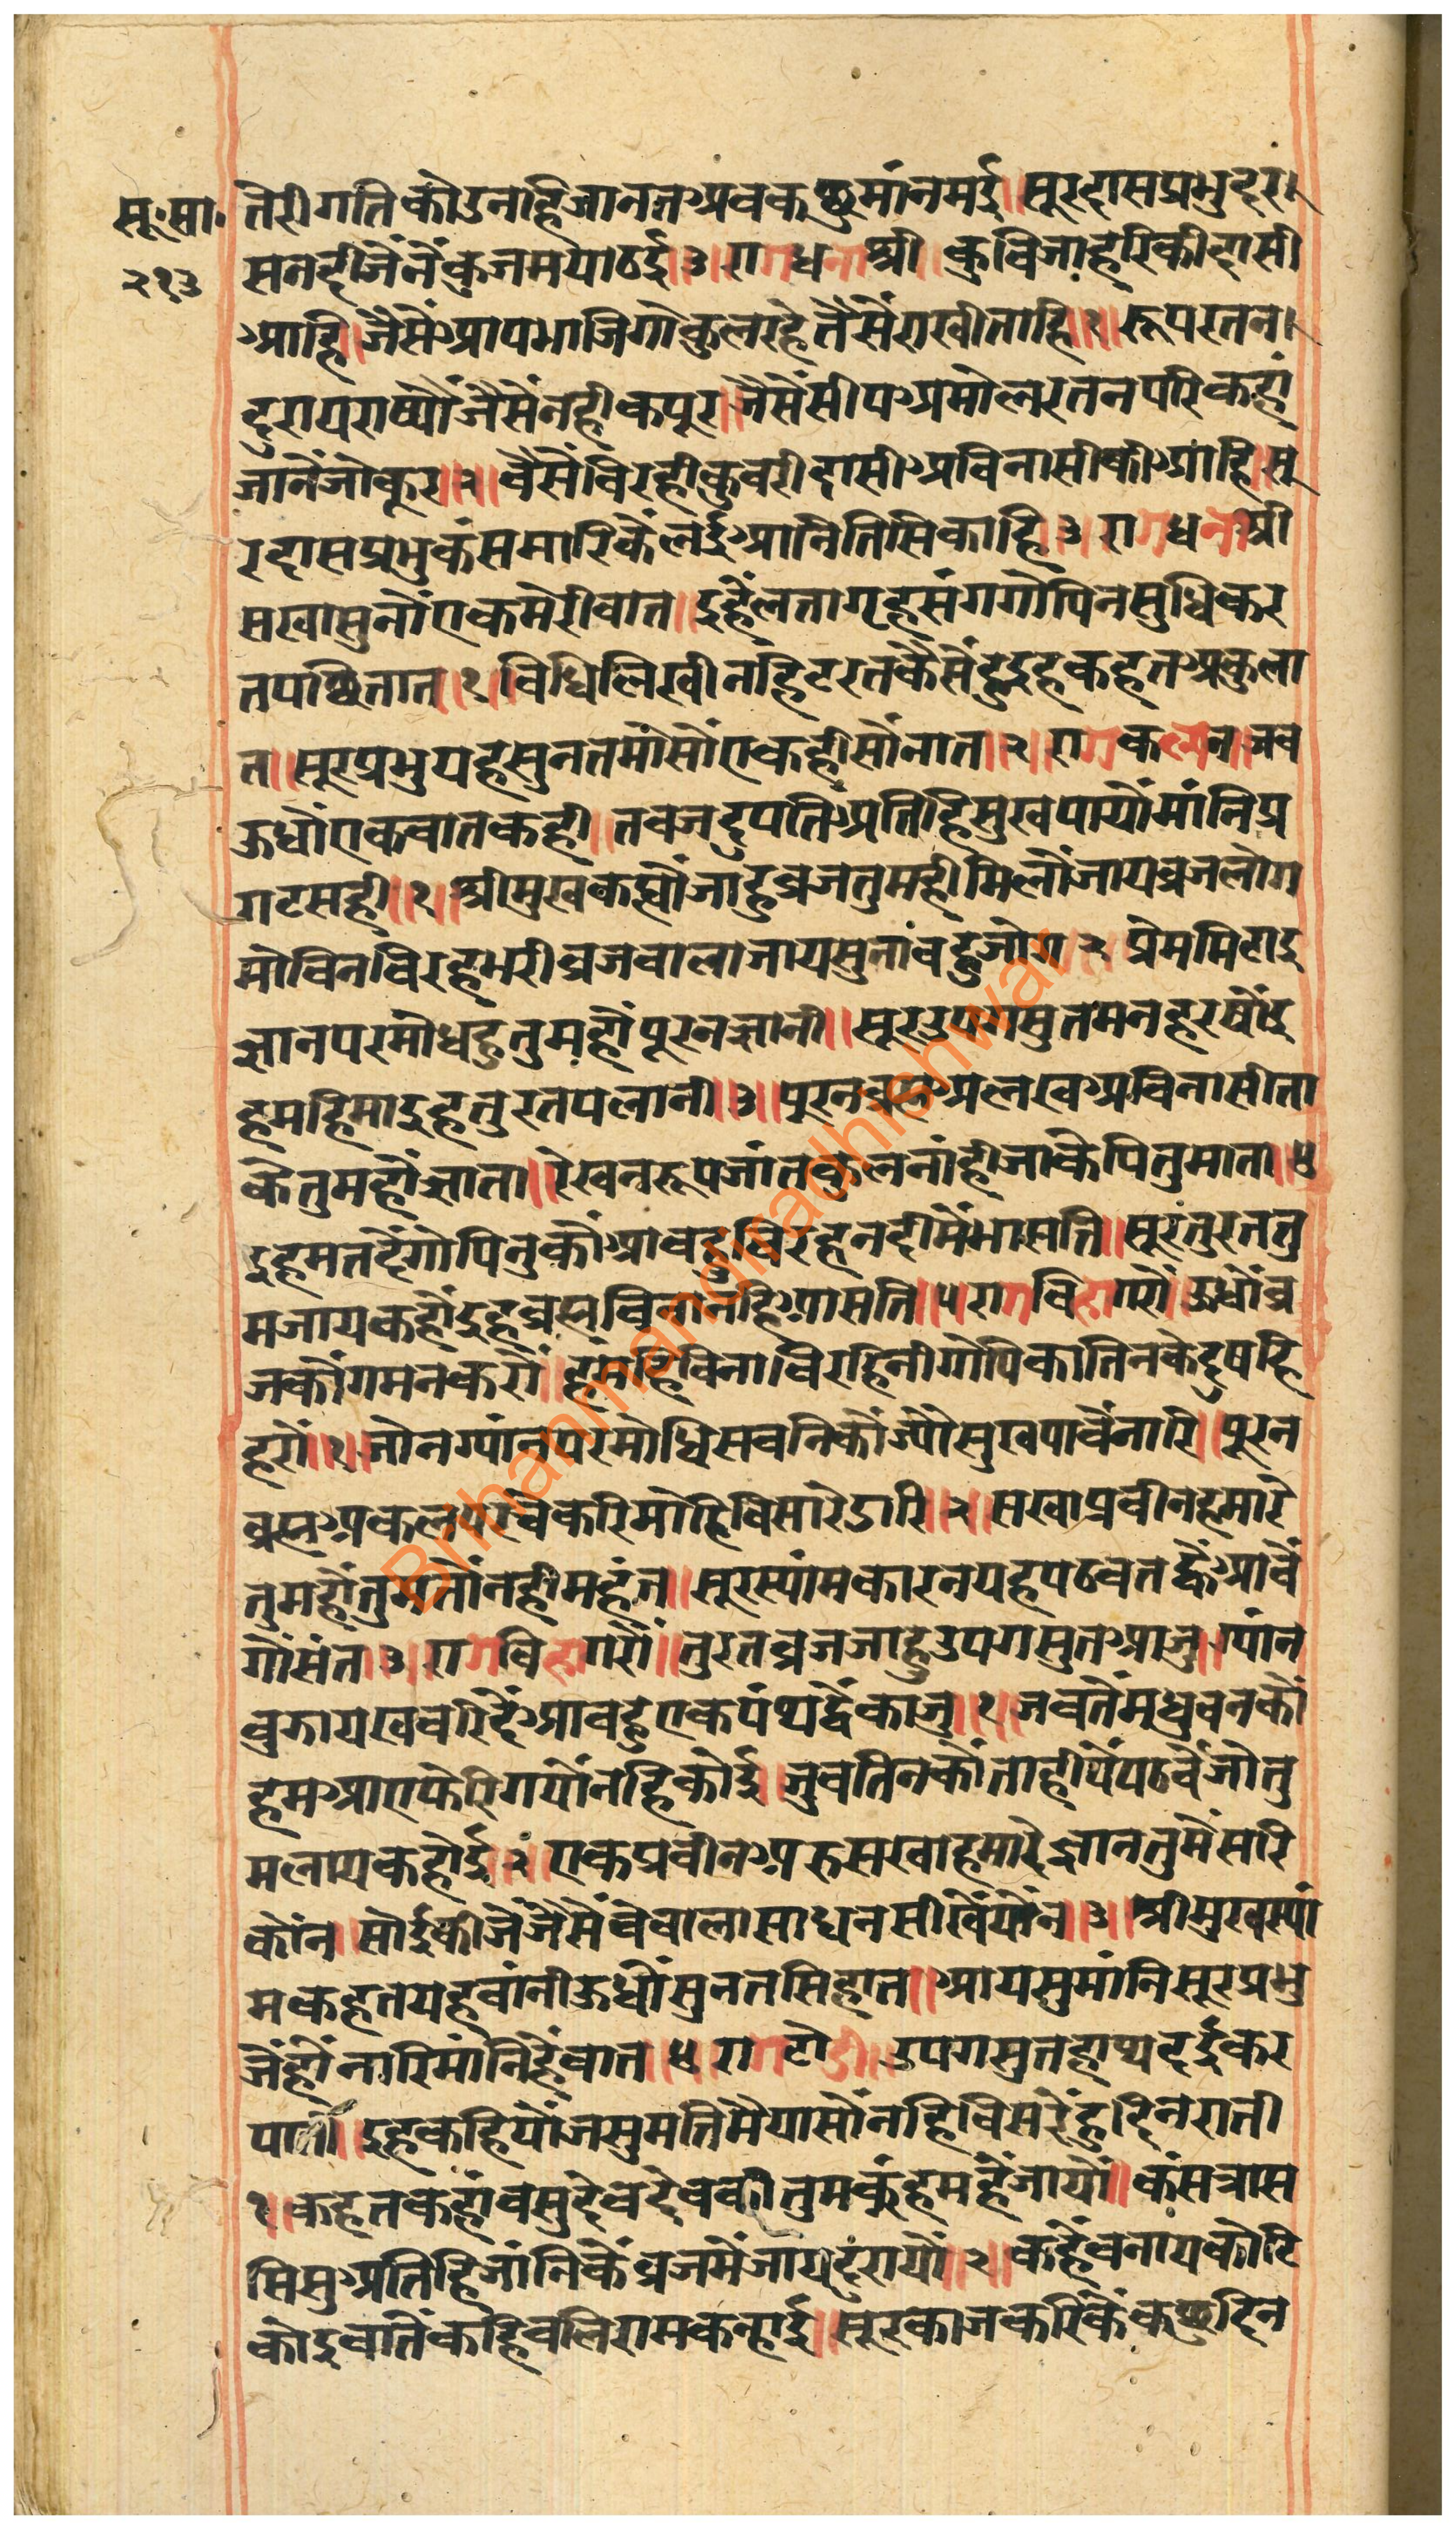 सू॰सा॰
२१३
तेरी गति कोउ नहि जानत अब कछु मांन मई॥ सूरदास प्रभु दर।
सन दीजैं नैंकु जम पाठई॥३॥ राग धनाश्री॥ कुबिजा हरि की दासी
आहि॥ जैसे आप भाजि गोकुल रहे तैसें राखी ताहि॥१॥ रूप रतन।
दुराय राष्यौं जैसें नही कपूर॥ जैसें सीप अमोल रतन परि कहां
जानैं जो कूर॥२॥ वैसें विरही कुवरी दासी अविनासी की आहि॥ सू
रदास प्रभु कंस मारि कें लई आनि तिसि काहि॥३॥ राग धनाश्री
सखा सुनौं एक मेरी बात॥ इहैं लता गृह संग गोपिन सुधि कर
त पछितात॥१॥ विधि लिखी नहि टरत कैसें हु इह कहत अकुला
त॥ सूर प्रभु यह सुनत मोसों एक ही सों नात॥२॥ राग कल्यान॥ जब
ऊधौं एक बात कही॥ तब जदुपति अतिहि सुख पायौं मांनि प्र
गट सही॥१॥ श्रीमुख कह्यौं जाहु ब्रज तुमही मिलौं जाय ब्रज लोग
मो बिन विरह भरी ब्रजबाला जाय सुनांवहु जोग॥२॥ प्रेम मिटाइ
ज्ञान परमोधहु तुम हौं पूरन ज्ञानी॥ सूर उपगसुत मन हरषौं इ
ह महिमा इह तुरत पलानी॥३॥ पुरन ब्रह्म अलख अविनासी ता
के तुम हौं ज्ञाता॥ रेख न रूप जांत कुल नांही जाके पितु माता॥४
इह मत दैं गोपिनु कौं आवहु विरह नदी में भासति॥ सूर तुरत तु
म जाय कहौं इह ब्रह्म विना नहि आसति॥५ राग विहागरौं॥ ऊधौं ब्र
ज कौं गमन करौं॥ हमहि विना विरहिनी गोपिका तिनके दुष हि
हरौं॥१॥ जोग ग्यांन परमोधि सबनि कौं ज्यौ सुख पावैं नारि॥ पूरन
ब्रह्म अकल परचै करि मोहि विसारे डारि॥२॥ सखा प्रवीन हमारे
तुम हौं तुम तौं नही महंत॥ सूर स्यांम कारन यह पठवत ह्वैं आवैं
गौं संत॥३॥ राग विहागरौं॥ तुरत ब्रज जाहु उपगसुत आजु॥ ग्यांन
बुझाय खबरि दैं आवहु एक पंथ द्वैं काजु॥१॥ जब तें मधुबन कौं
हम आए फेरि गयौं नहि कोई॥ जुवतिन कौं ताही पें पठवैं जो तु
म लायक होई॥२॥ एक प्रवीन अरु सखा हमारे ज्ञान तुमैं सरि
कौंन॥ सोई कीजैं जैसैं वे बाला साधन सीखैं पौंन॥३॥ श्रीमुख स्यां
म कहत यह बांनी ऊधौं सुनत सिहात॥ आयसु मांनि सूर प्रभु
जैंहौं नारि मांनिहैं बात॥४ राग टोडी॥ उपगसुत हाथ दई कर
पाती॥ इह कहियौं जसुमति मैया सौं नहि विसरें हु दिन राती
१॥ कहत कहां वसुदेव देवकी तुम कुं हम हैं जायौं॥ कंस त्रास
सिसु अतिहि जांनि कें ब्रज में जाय दुरायौं॥२॥ कहैं बनाय कोटि
कोइ बातैं कहि बलिराम कन्हाई॥ सूर काज करि कें कछु दिन